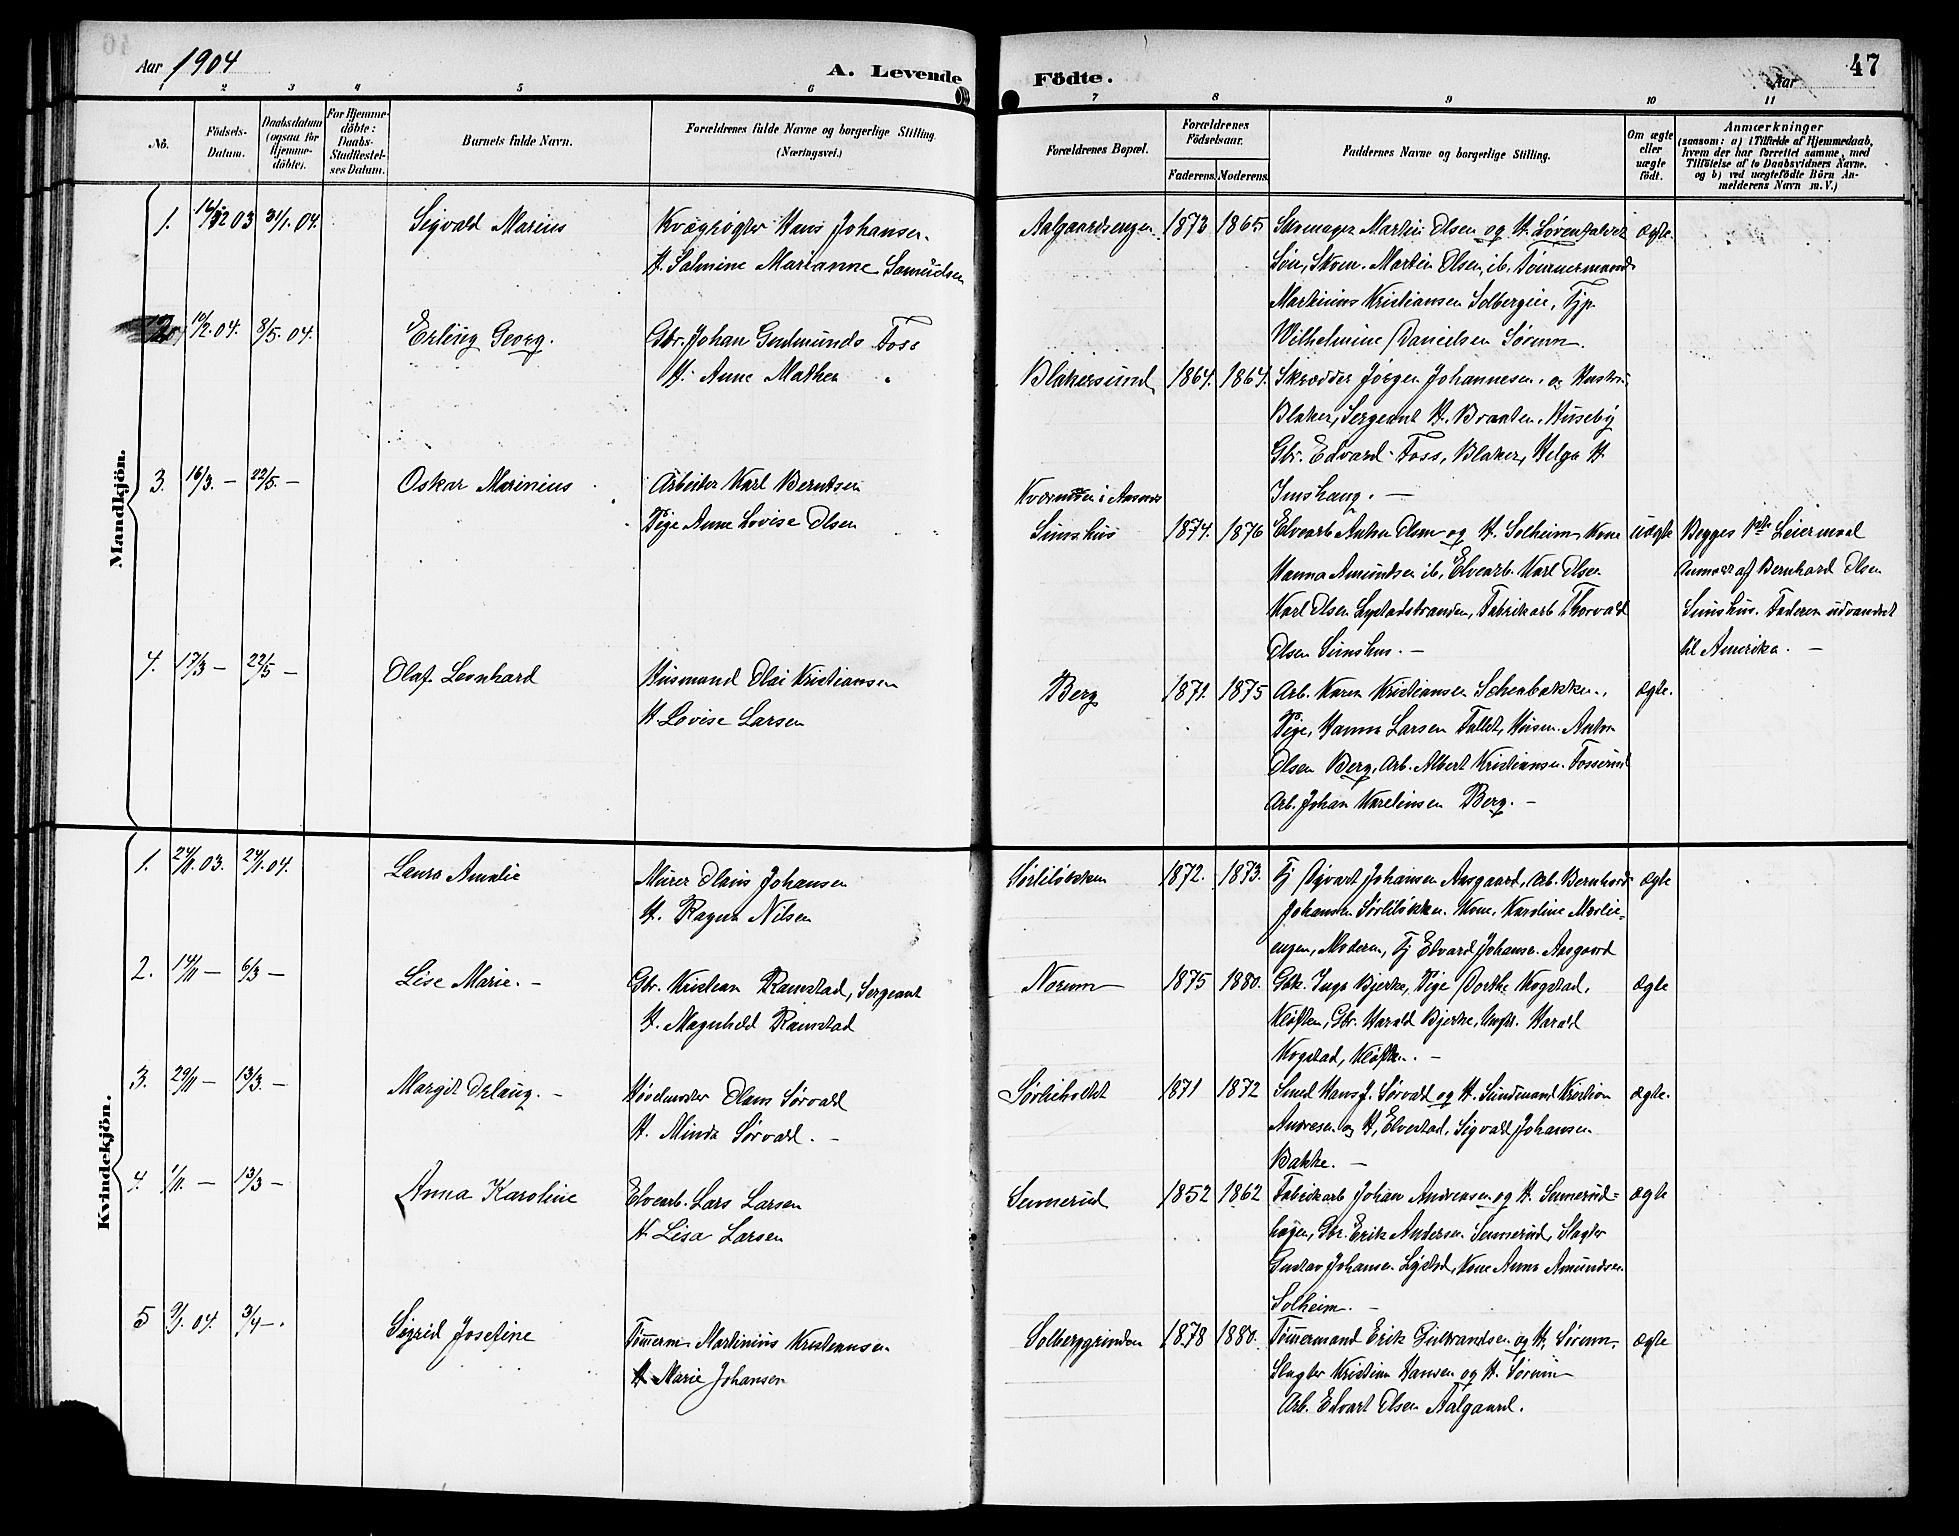 Aar 1904
A. Levende
Födte.
47
Aar
1 2 3 4 5 6 7 8 9 10 11
No.
Födsels-Datum.
Daabsdatum (ogsaa for Hjemmedöbte).
For Hjemmedöbte: Daabs-Stadfæstelses Datum.
Barnets fulde Navn.
Forældrenes fulde Navne og borgerlige Stilling. (Næringsvei.)
Forældrenes Bopæl.
Forældrenes Födselsaar.
Faderens. Moderens.
Faddernes Navne og borgerlige Stilling.
Om ægte eller uægte födt.
Anmærkninger
(saasom: a) i Tilfælde af Hjemmedaab, hvem der har forrettet samme, med Tilföielse af to Daabsvidners Navne. og b) ved uægtefödte Börn Anmelderens Navn m. V.)
Mandkjön.
1. 16/12 03 31/1. 04. Sigvald Marius
Kvægrøgter Hans Johansen.
H. Salmine Marianne Samuelsen
Aalgaardsengen 1873 1865
Skomager Martin Olsen og H. Løvenfalvet
Søn, Skom. Martin Olsen, ib. Tømmermand
Martinius Kristiansen Solbergeie, Tjp.
Wilhelmine Danielsen Sørum.
ægte.
2. 16/2. 04. 8/5. 04. Erling Georg.
Gbr. Johan Gudmunds Foss
H. Anne Mathea "
Blakersund 1864. 1864.
Skrædder Jørgen Johannesen, og Hustru
Blaker, Sergeant H. Braaten, Huseby
Gbr. Edvard Foss, Blaker, Helga H.
Imshaug. —
3. 16/3. — 22/5. — Oskar Marinius
Arbeider Karl Berntsen
Pige Anne Lovise Olsen
Simshus 1874. 1876
Elvearb. Anton Olsen og H. Solheim, Kone
Hanna Amundsen ib, Elvearb. Karl Olsen
Karl Olsen Lystadstranden, Fabrikarb Thorvald
Olsen Simshus. —
uægte
Begges 1ste Leiermaal
Anmeldt af Bernhard Olsen
Simshus. Faderen udvandret
til Amerika. —
4. 17/3 — 22/5 — Olaf Leonhard
Husmand Olai Kristiansen
H. Lovise Larsen
Berg 1871. 1875
Arb. Karen Kristiansen Schenbakken,
Pige, Hanna Larsen Fallet, Husm. Anton
Olsen Berg, Arb. Albert Kristiansen Fosserud
Arb. Johan Karelinsen Berg. —
ægte.
Kvindekjön.
1. 24/11. 03. 24/1. 04. Laura Amalie
Murer Olaus Johansen
H. Ragna Nilsen
Sørliløkken 1872. 1873.
Tj Sigvart Johansen Aasgaard, Arb. Bernhard
Johansen Sørliløkken. Kone, Karoline Mælie-
engen, Moderen, Tj Edvard Johansen Aasgaard
ægte
2. 14/11 — 6/3 — Lise Marie. —
Gbr. Kristian Ramstad, Sergeant
H. Magnhild Ramstad
Norum 1875 1880.
Gbk. Inga Bjerke, Pige Dorthe Kogstad,
Kløften, Gbr. Harald Bjerke, Ungk. Harald
Kogstad, Kløften. —
ægte
3. 29/11 — 13/3 — Margit Orlaug. —
Høvelmester Olaus Sørvald
H. Minda Sørvald. —
Sørlieholtet 1871 1872
Smed Hans J. Sørvald og H. Sundmand Kristian
Andresen og H, Elvestad, Sigvald Johansen
Bakke. —
ægte.
4. 1/11. — 13/3 — Anna Karoline
Elvearb. Lars Larsen
H. Lisa Larsen
Sennerud 1852 1862
Fabrikarb Johan Andreasen og H. Sennerud-
hagen, Gbr. Erik Andersen Sennerud, Slagter
Gustav Johansen Lystad, Kone Anna Amundsen
Solheim. —
ægte
5 9/1. 04. 3/4 — . Sigrid Josefine
Tømerm. Martinius Kristiansen
H Marie Johansen
Solberggrinden 1878 1880.
Tømermand Erik Gulbrandsen og H. Sørum,
Slagter Kristian Hansen og H. Sørum
Arb. Edvart Olsen Aalgaard.
ægte